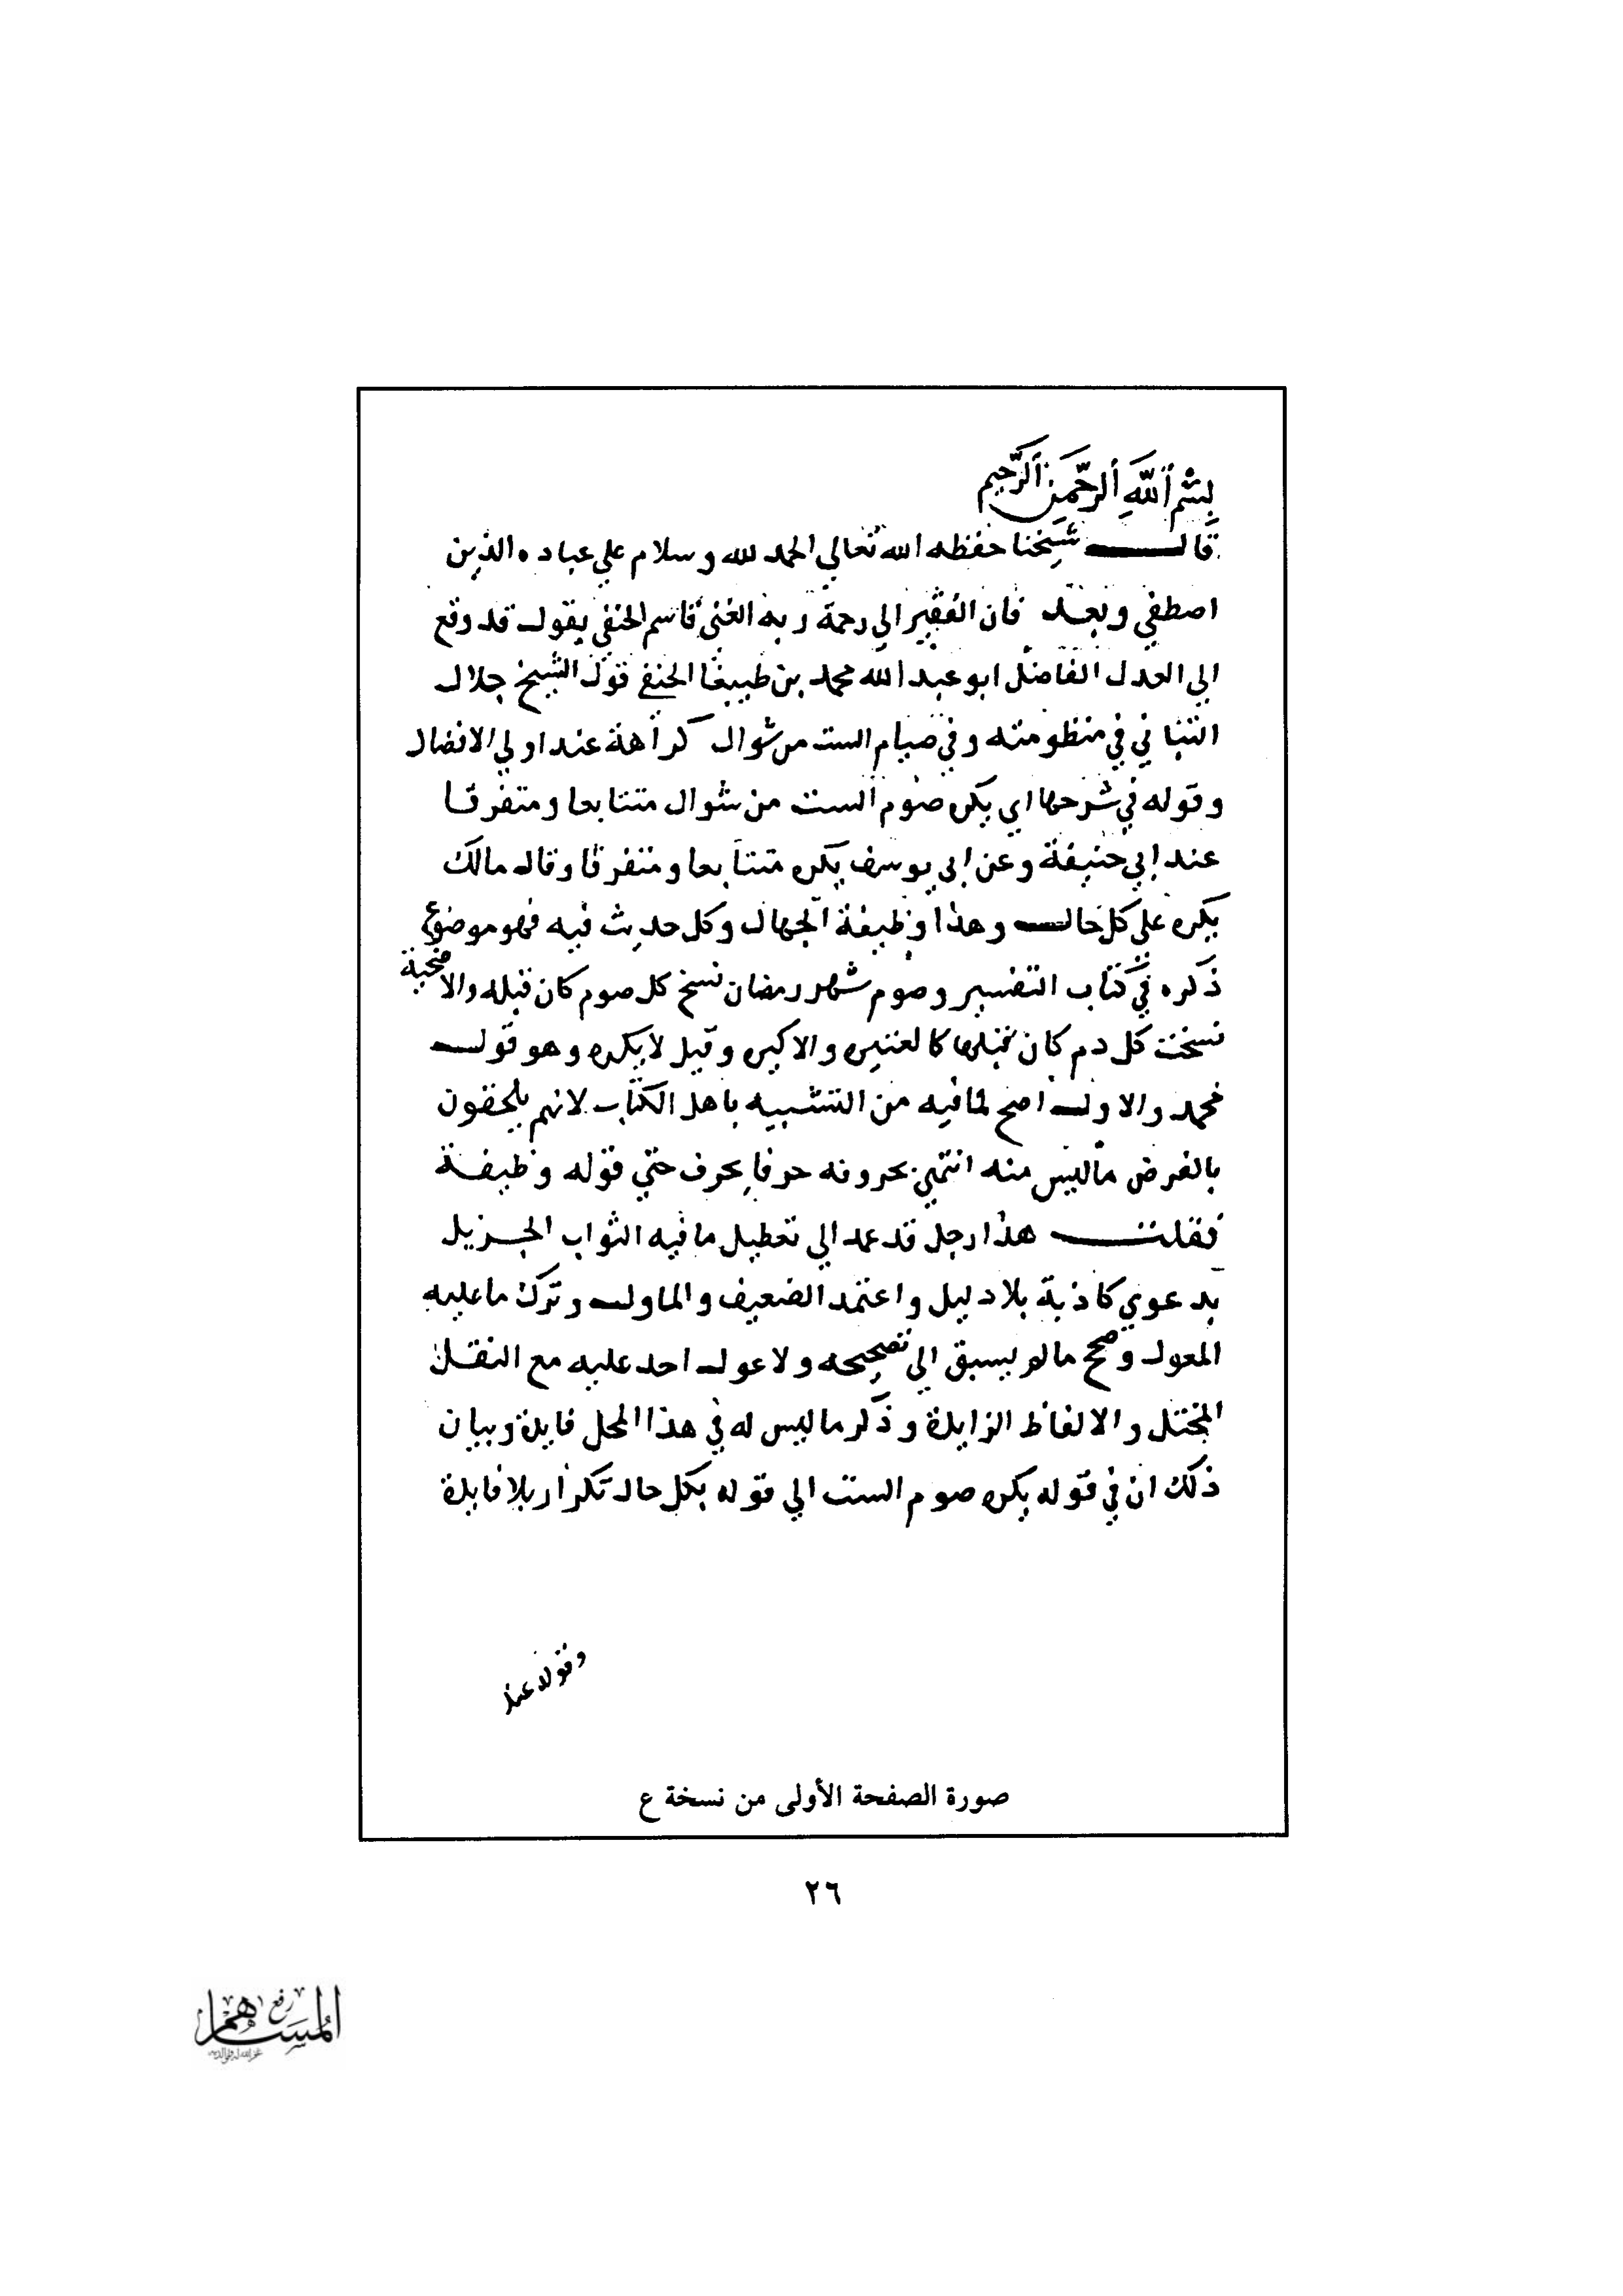 بِسْمِ اللَّهِ الرَّحْمَنِ الرَّحِيمِ
قال شيخنا حفظه الله تعالي الحمد لله وسلام علي عباده الذين
اصطفي وبعد فان الفقير الي رحمة ربه الغني قاسم الحنفي يقول قد رفع
الي العدل الفاضل ابو عبد الله محمد بن طيبغا الحنفي قول الشيخ جلال
التباني في منظومته وفي صيام الست من شوال كراهة عند اولي الافضال
وقوله في شرحها اي يكره صوم الست من شوال متتابعا ومتفرقا
عند ابي حنيفة وعن ابي يوسف يكره متتابعا ومتفرقا وقال مالك
يكره علي كل حال وهذا وظيفة الجهال وكل حديث فيه فهو موضوع
ذكره في كتاب التفسير وصوم شهر رمضان نسخ كل صوم كان قبله والاضحية
نسخت كل دم كان قبلها كالعتيره والاكبره وقيل لا يكره وهو قول
محمد والاول اصح لما فيه من التشبيه باهل الكتاب لانهم يلحقون
بالفرض ما ليس منه انتهي بحروفه حرفا بحرف حتي قوله وظيفة
فقلت هذا رجل قد عمد الي تعطيل ما فيه الثواب الجزيل
بدعوي كاذبة بلا دليل واعتمد الضعيف والماول وترك ما عليه
المعول وصحح ما لم يسبق الي تصحيحه ولا عول احد عليه مع النقل
المختل والالفاظ الزايدة وذكر ما ليس له في هذا المحل فايدة وبيان
ذلك ان في قوله يكره صوم الست الي قوله بكل حال تكرار بلا فايدة
وقوله عند
صورة الصفحة الأولى من نسخة ع
٢٦
رفع
المساهم
غفر الله له ولوالديه